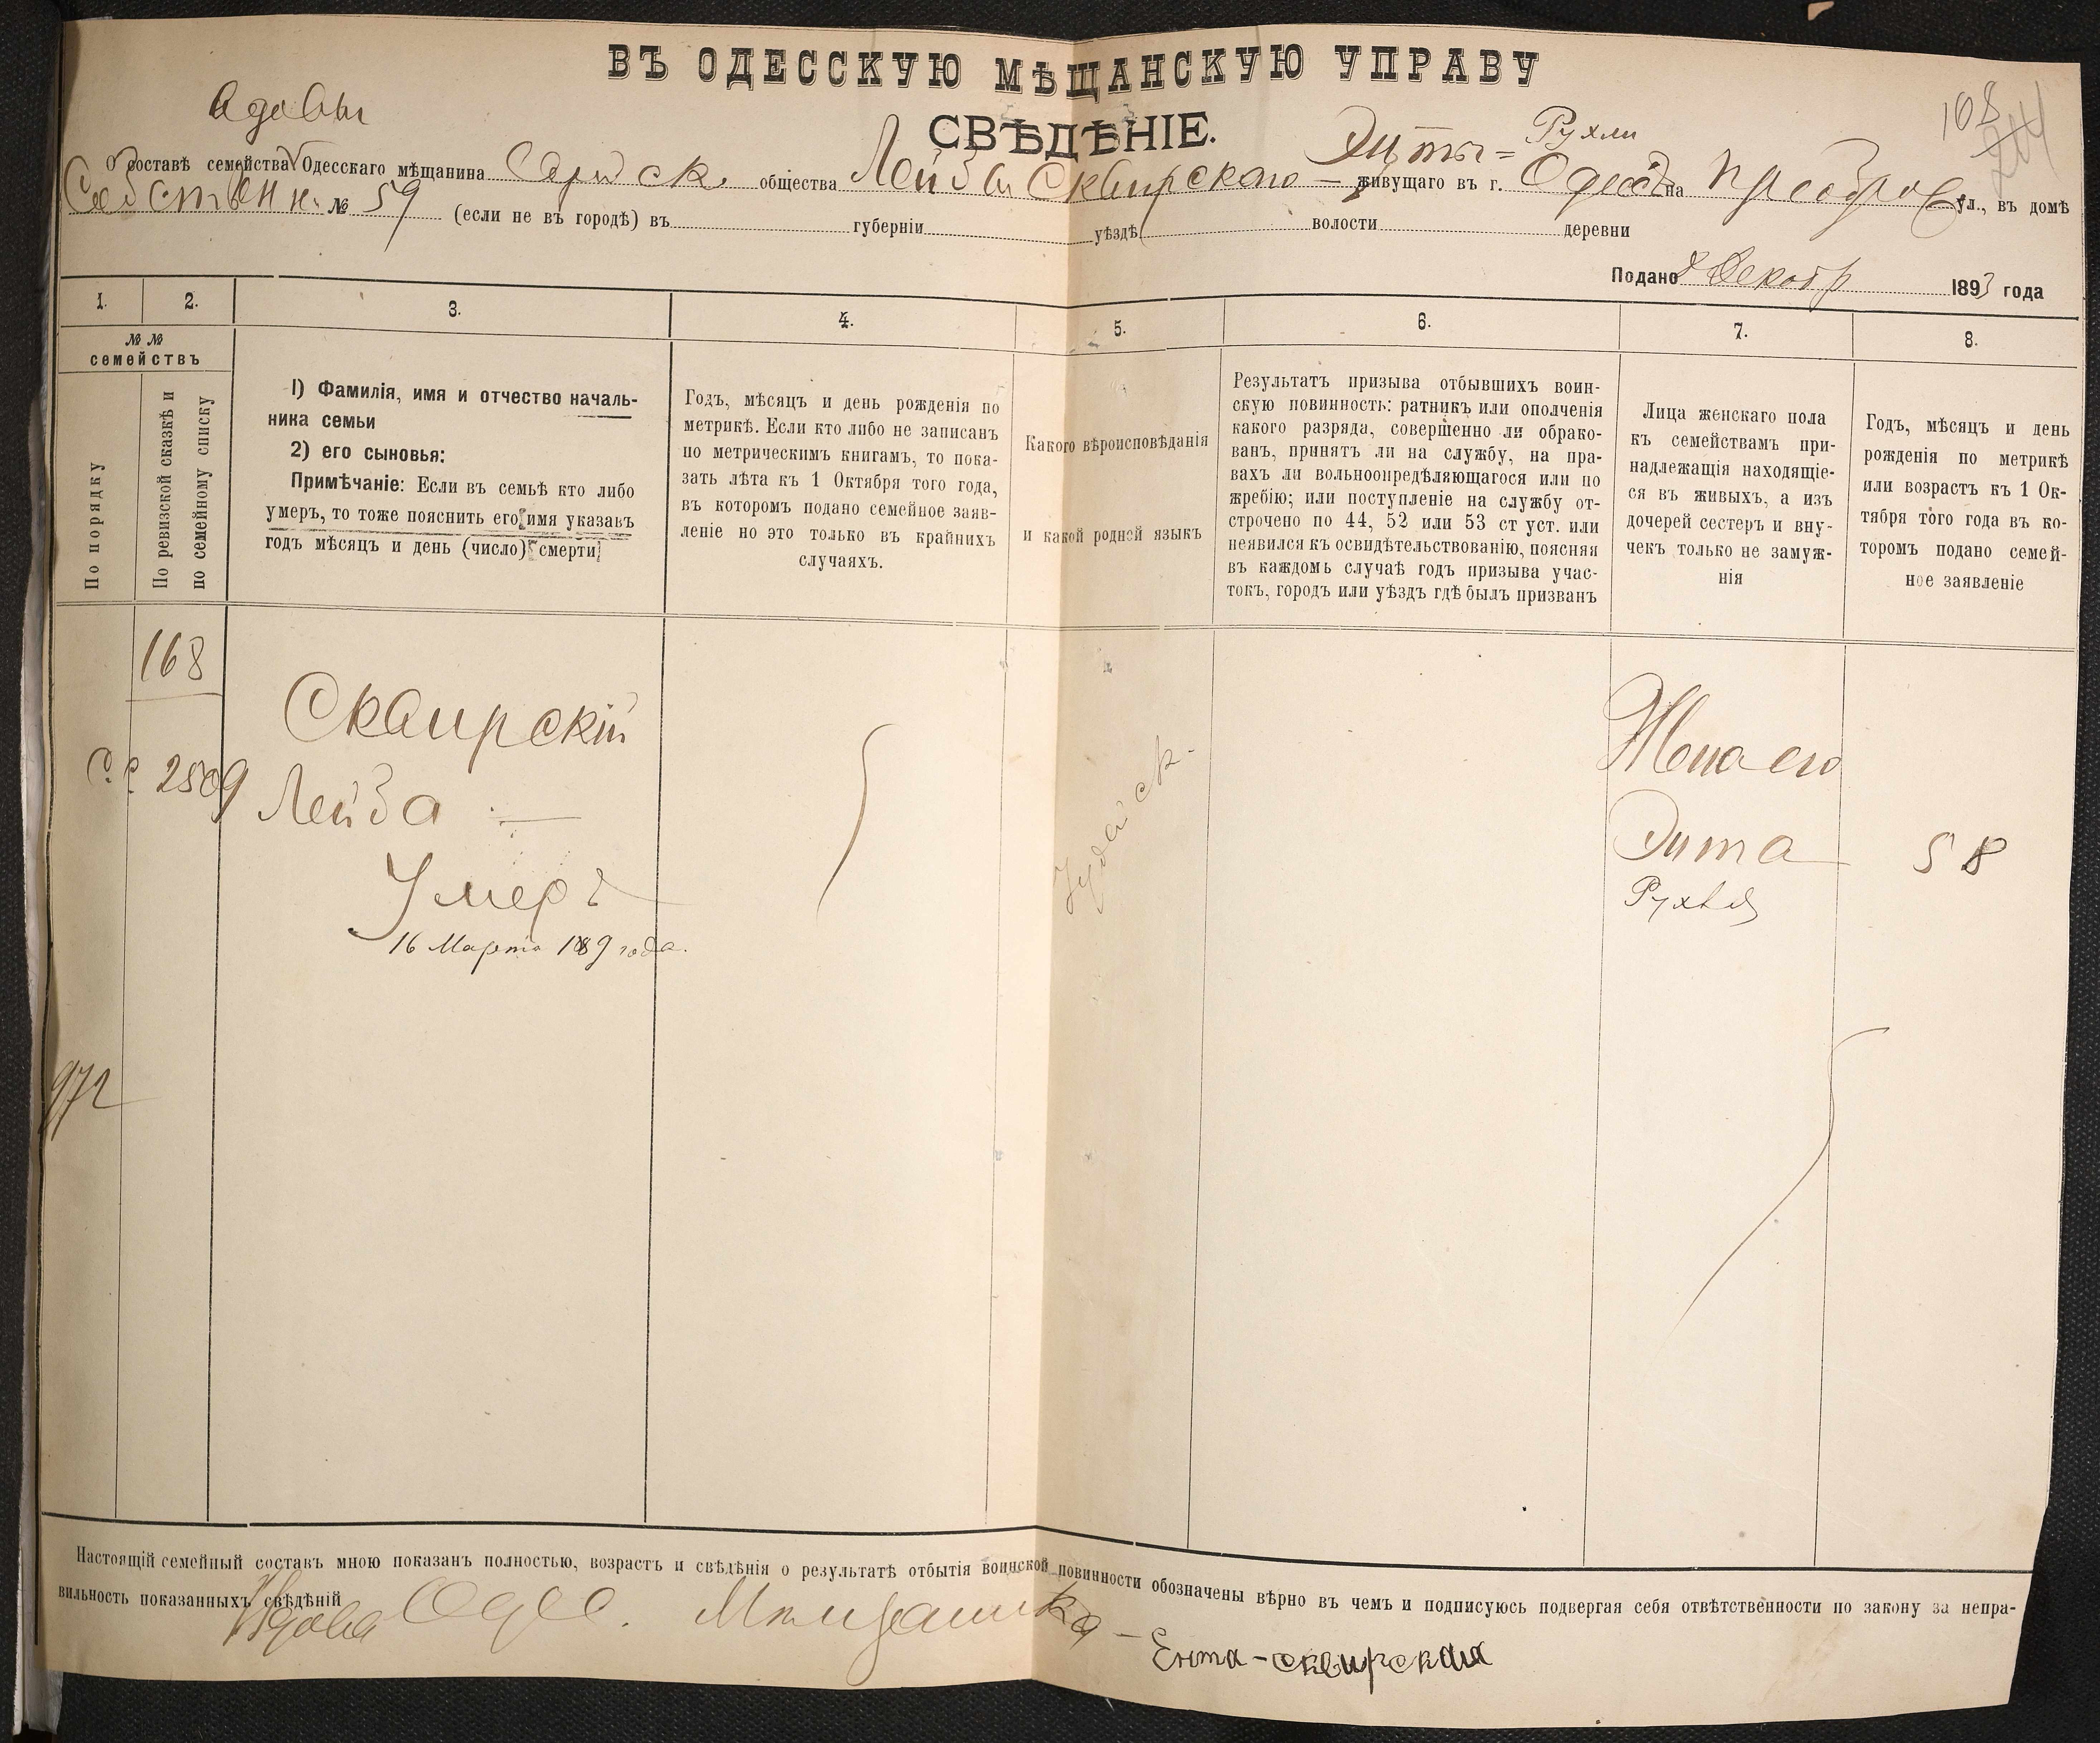 ВЪ ОДЕССКУЮ МѢЩАНСКУЮ УПРАВУ
СВѢДѢНІЕ.
Вдовы
Рухли
О составѣ семейства Одесскаго мѣщанина Еврейск. общества Лейзы Сквирскаго — Энты = живущаго въ г. Одессѣ на Преображ ул., въ домѣ
Собственн. № 59 (если не въ городѣ) въ губерніи уѣздѣ волости деревни
Подано 8 Декабр 1893 года
1. 2. 3. 4. 5. 6. 7. 8.
№ №
семействъ
По порядку
По ревизской сказкѣ и
по семейному списку
1) Фамилія, имя и отчество началь-
ника семьи
2) его сыновья:
Примѣчаніе: Если въ семьѣ кто либо
умеръ, то тоже пояснить его имя указавъ
годъ мѣсяцъ и день (число) смерти
Годъ, мѣсяцъ и день рожденія по
метрикѣ. Если кто либо не записанъ
по метрическимъ книгамъ, то пока-
зать лѣта къ 1 Октября того года,
въ которомъ подано семейное заяв-
леніе но это только въ крайнихъ
случаяхъ.
Какого вѣроисповѣданія
и какой родной языкъ
Результатъ призыва отбывшихъ воин-
скую повинность: ратникъ или ополченія
какого разряда, совершенно ли обрако-
ванъ, принятъ ли на службу, на пра-
вахъ ли вольноопредѣляющагося или по
жребію; или поступленіе на службу от-
строчено по 44, 52 или 53 ст уст. или
неявился къ освидѣтельствованію, поясняя
въ каждомъ случаѣ годъ призыва учас-
токъ, городъ или уѣздъ гдѣ былъ призванъ
Лица женскаго пола
къ семействамъ при-
надлежащія находящіе-
ся въ живыхъ, а изъ
дочерей сестеръ и вну-
чекъ только не замуж-
нія
Годъ, мѣсяцъ и день
рожденія по метрикѣ
или возрастъ къ 1 Ок-
тября того года въ ко-
торомъ подано семей-
ное заявленіе
168
С. С. 2509
972
Сквирскій
Лейза —
Умеръ
16 Марта 1889 года.
Іудейск.
Жена его
Энта
Рухля
58
Настоящій семейный составъ мною показанъ полностью, возрастъ и свѣдѣнія о результатѣ отбытія воинской повинности обозначены вѣрно въ чемъ и подписуюсь подвергая себя отвѣтственности по закону за непра-
вильность показанныхъ свѣдѣній Вдова Одес. Мѣщанка —
Ента-сквирская